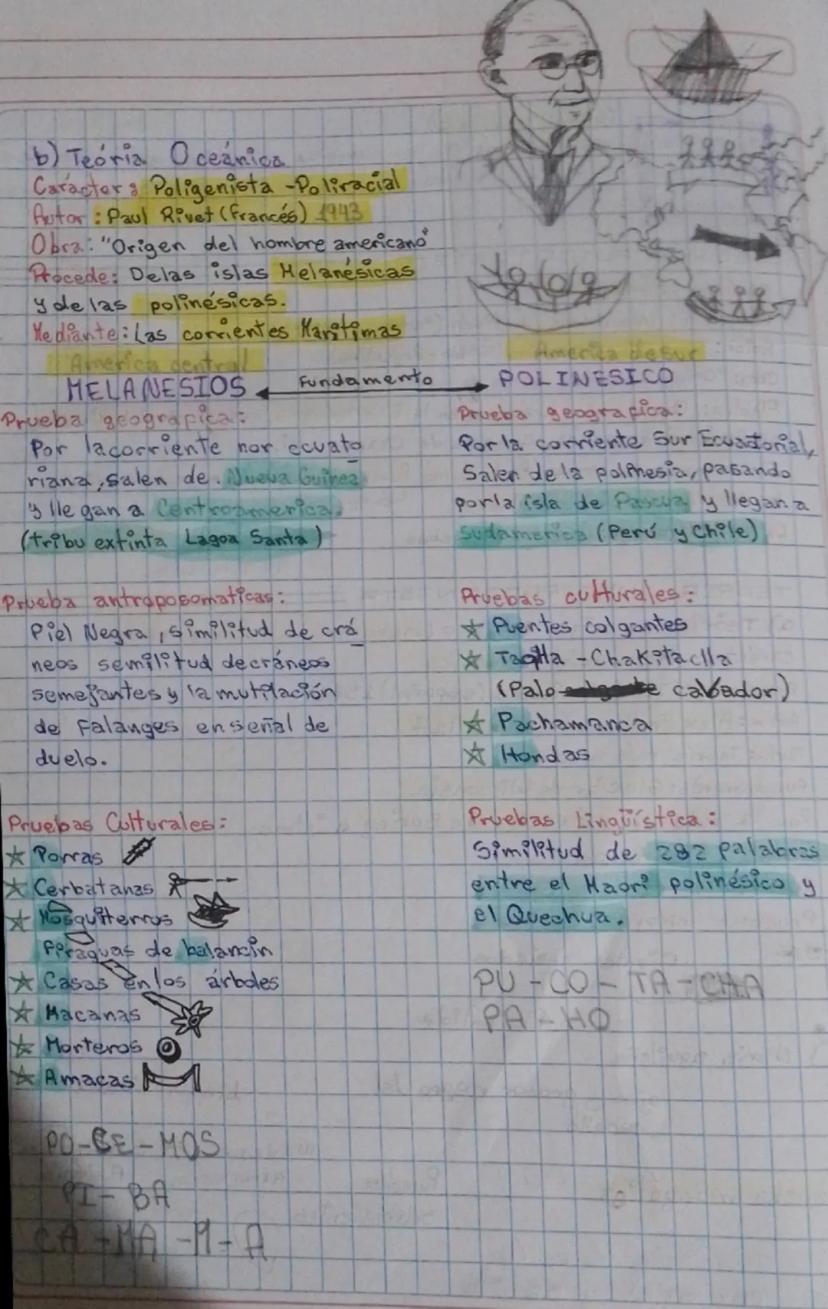 b) Teória Oceánica
Carácter: Poligenista - Poliracial
Autor: Paul Rivet (Francés) 1943
Obra: "Origen del hombre americano"
Procede: Delas islas Melanésicas
y de las polinésicas.
Mediante: Las corrientes Marítimas
America central
MELANESIOS
Fundamento
America de sur
POLINESICO
Prueba geografica:
Por lacorriente nor ecuato
riana, salen de Nueva Guinea
y llegan a Centroamerica.
(tribu extinta Lagoa Santa)
Prueba antroposomaticas:
Piel Negra, similitud de crá
neos semilitud decráneos
semejantes y la mutilación
de Falanges enseñal de
duelo.
Pruebas Culturales:
Porras
Cerbatanas
Mosquiterros
Piraguas de balancin
Casas enlos árboles
Macanas
Morteros
Amacas
PO-CE-MOS
PI-BA
CA-MA-M-A
Prueba geografica:
Porla corriente Sur Ecuatorial,
Salen de la polinesia, pasando
porla isla de Pascua y llegan a
sudamerica (Perú y Chile)
Pruebas culturales:
Puentes colgantes
Taclla - Chakitaclla
(Palo cabador)
Pachamanca
Hondas
Pruebas Lingüistica:
Similitud de 282 palabras
entre el Maori polinésico y
el Quechua.
PU-CO-TA-CHA
PA-HO